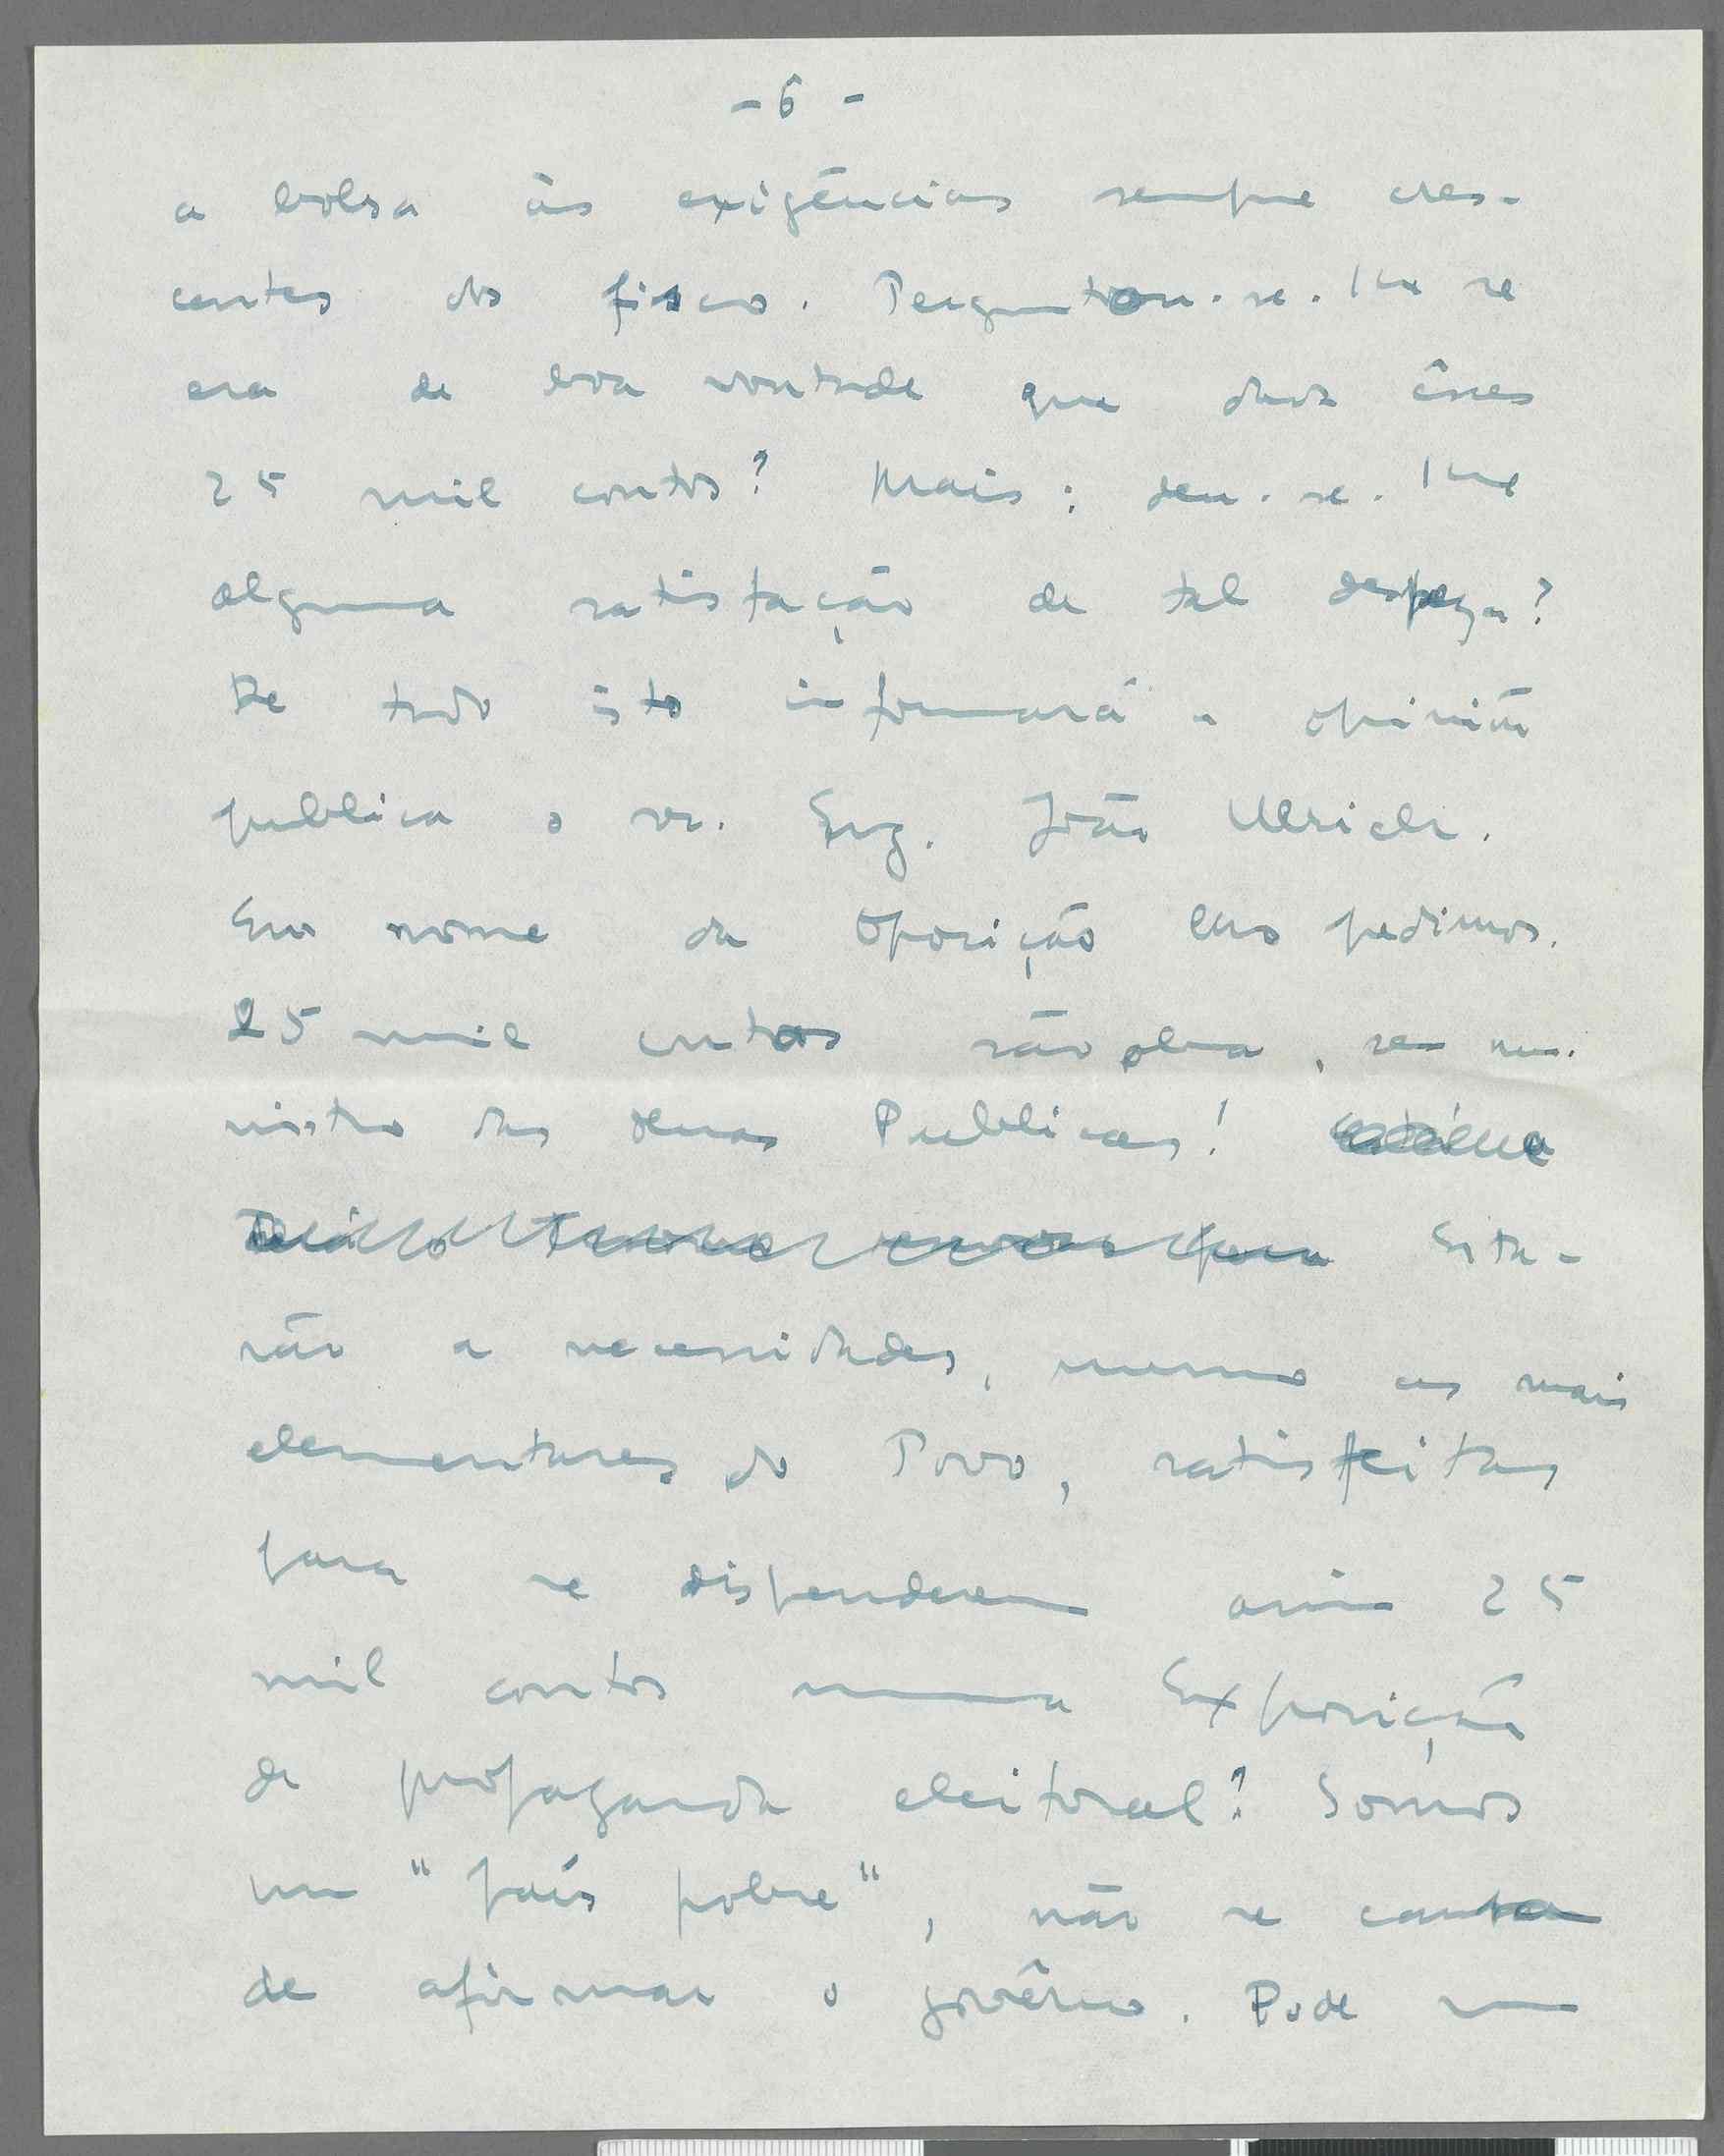 - 6 -
a bolsa às exigências sempre cres-
centes do fisco. Perguntou-se-lhe se
era de boa vontade que dava êsses
25 mil contos? Mais: deu-se-lhe
alguma satisfação de tal despeza?
De tudo isto informará a opinião
publica o sr. Eng. João Ulrich.
Em nome da Oposição lho pedimos.
25 mil contos são obra, sr. mi-
nistro das Obras Publicas!
Esta-
rão a necessidades, mesmo as mais
elementares do Povo, satisfeitas
para se dispenderem assim 25
mil contos numa Exposição
de propaganda eleitoral? Somos
um "país pobre", não se cansa
de afirmar o govêrno. Pode um